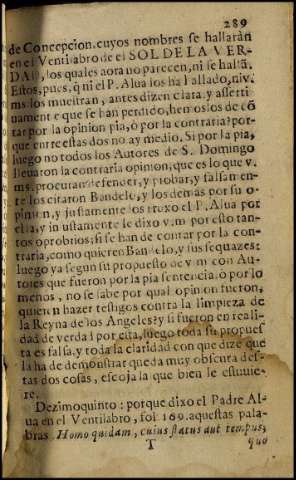 289
de Concepcion.cuyos nombres se hallaràn
en el Ventilabro de el SOL DE LA VER-
DAD, los quales aora no parecen, ni se hallã,
Estos, pues, q̃ ni el P. Alua los ha hallado, ni v.
ms. los muestran, antes dizen clara, y asserti-
uamente que se han perdido, hemoslos de cõ
tar por la opinion pia, ò por la contraria? por-
que entre estas dos no ay medio. Si por la pia,
luego no todos los Autores de S. Domingo
lleuaron la contraria opinion, que es lo que v.
ms. procuran defender, y probar, y falsamen-
te los citaron Bandelo, y los demàs por su o-
pinion, y justamente los truxo el P. Alua por
ella, y injustamente le dixo v.m por esto tan-
tos oprobrios; si se han de contar por la con-
traria, como quieren Bandelo, y sus sequazes:
luego ya segun su proposito de v.m con Au-
tores que fueron por la pia sentencia, ò por lo
menos, no se sabe por qual opinion fueron,
quieren hazer testigos contra la limpieza de
la Reyna de los Angeles? y si fueron en reali-
dad de verdad por esta, luego toda su propues
ta es falsa, y toda la claridad con que dize que
la ha de demonstrar queda muy obscura des-
tas dos cosas, escoja la que bien le estuuie-
re.
Dezimoquinto: porque dixo el Padre Al-
ua en el Ventilabro, fol 169. aquestas pala-
bras. Homo quidam, cuius status aut tempus,
T
quo